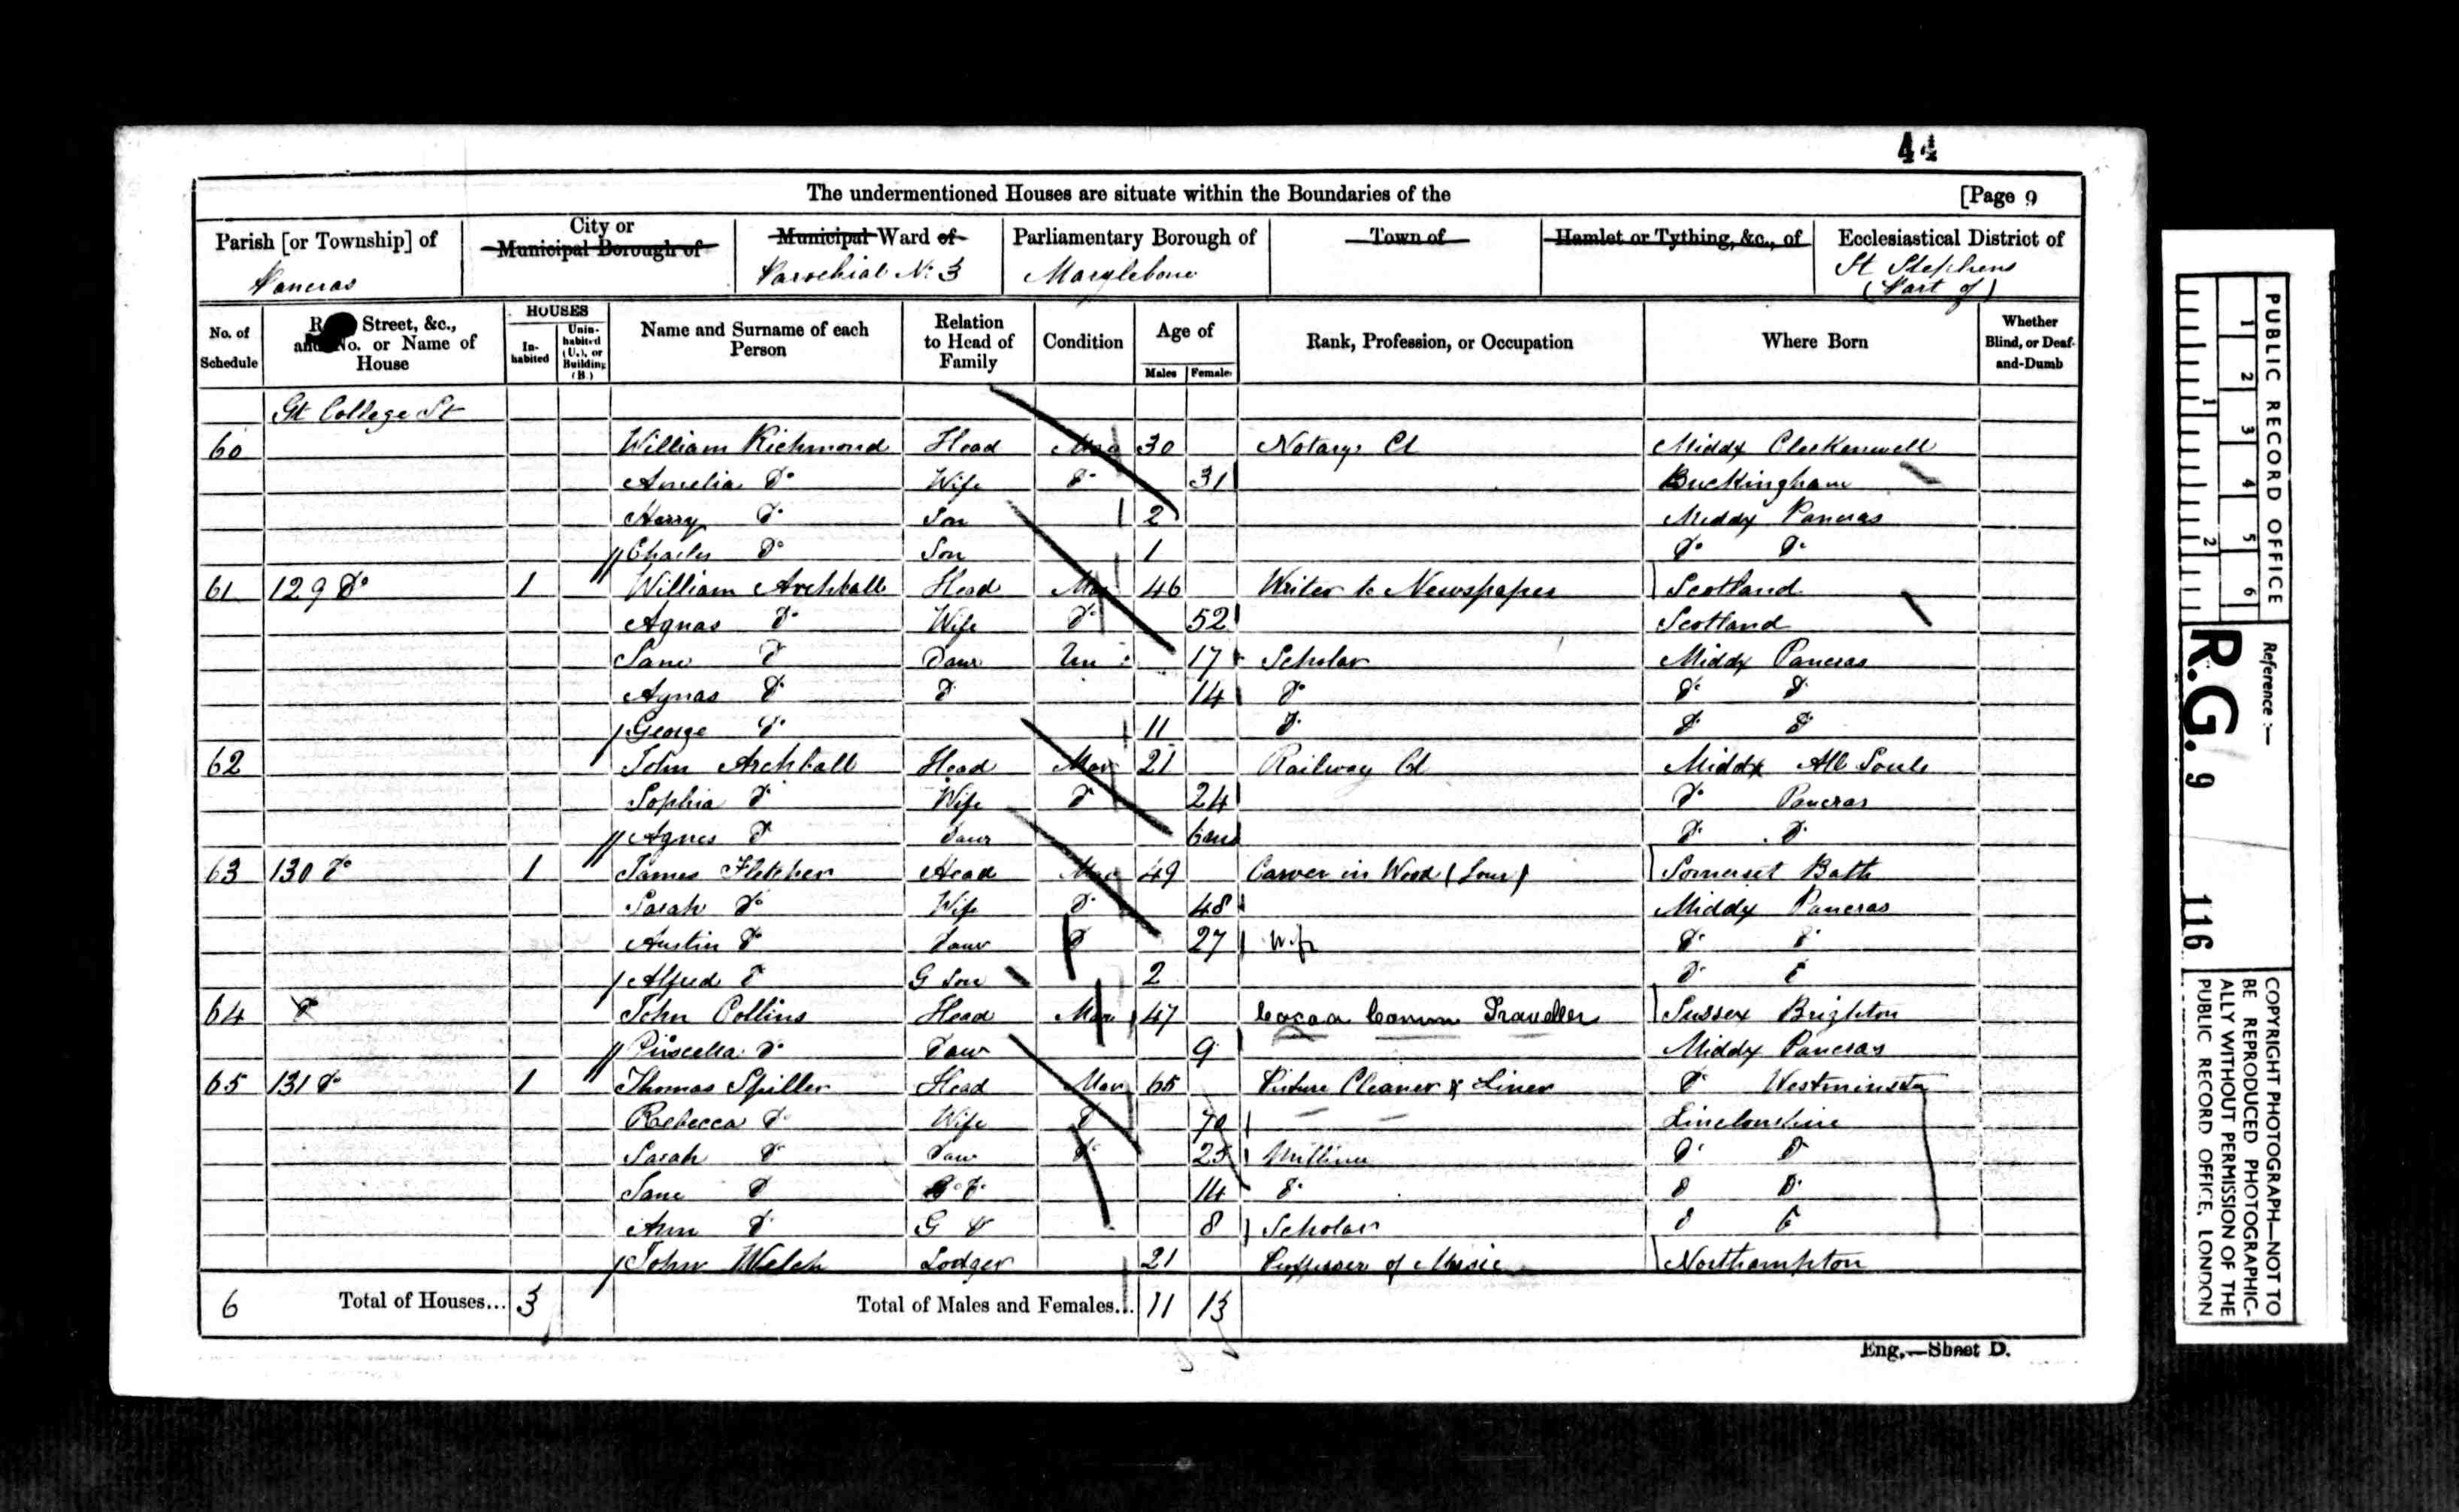 44
The undermentioned Houses are situate within the Boundaries of the [Page 9
Parish [or Township] of Pancras
City or Municipal Borough of
Municipal Ward of Parochial No 3
Parliamentary Borough of Marylebone
Town of
Hamlet or Tything, &c., of
Ecclesiastical District of St Stephens (Part of)
No. of Schedule
Street, &c., and No. or Name of House
HOUSES
Inhabited
Uninhabited (U.), or Building (B.)
Name and Surname of each Person
Relation to Head of Family
Condition
Age of
Males Females
Rank, Profession, or Occupation
Where Born
Whether Blind, or Deaf-and-Dumb
Gt College St
60 William Richmond Head Mar 30 Notarys Cl Middx Clerkenwell
Amelia Do Wife Do 31 Buckingham
Harry Do Son 2 Middx Pancras
Charles Do Son 1 Do Do
61 129 Do 1 William Archball Head Mar 46 Writer to Newspaper Scotland
Agnas Do Wife Do 52 Scotland
Jane Do Daur Un 17 Scholar Middx Pancras
Agnas Do Do 14 Do Do Do
George Do 11 Do Do Do
62 John Archball Head Mar 21 Railway Cl Middx All Souls
Sophia Do Wife Do 24 Do Pancras
Agnes Do Daur 6 Do Do
63 130 Do 1 James Fletcher Head Mar 49 Carver in Wood Somerset Bath
Sarah Do Wife Do 48 Middx Pancras
Austin Do Daur Do 27 Wife Do Do
Alfred Do G Son 2 Do Do
64 Do John Collins Head Mar 47 Cocoa Comm Traveller Sussex Brighton
Priscella Do Daur 9 Middx Pancras
65 131 Do 1 Thomas Spiller Head Mar 65 Picture Cleaner & Liner Do Westminster
Rebecca Do Wife Do 70 Linclonshire
Sarah Do Daur Do 25 Milliner Do Do
Jane Do 14 Do Do Do
Ann Do G D 8 Scholar Do Do
John Welch Lodger 21 Proffesser of Music Northampton
6 Total of Houses... 3 Total of Males and Females... 11 13
Eng.—Sheet D.
PUBLIC RECORD OFFICE
1 2 3 4 5 6
1 2
Reference :—
R.G. 9 116
COPYRIGHT PHOTOGRAPH—NOT TO
BE REPRODUCED PHOTOGRAPHIC-
ALLY WITHOUT PERMISSION OF THE
PUBLIC RECORD OFFICE, LONDON